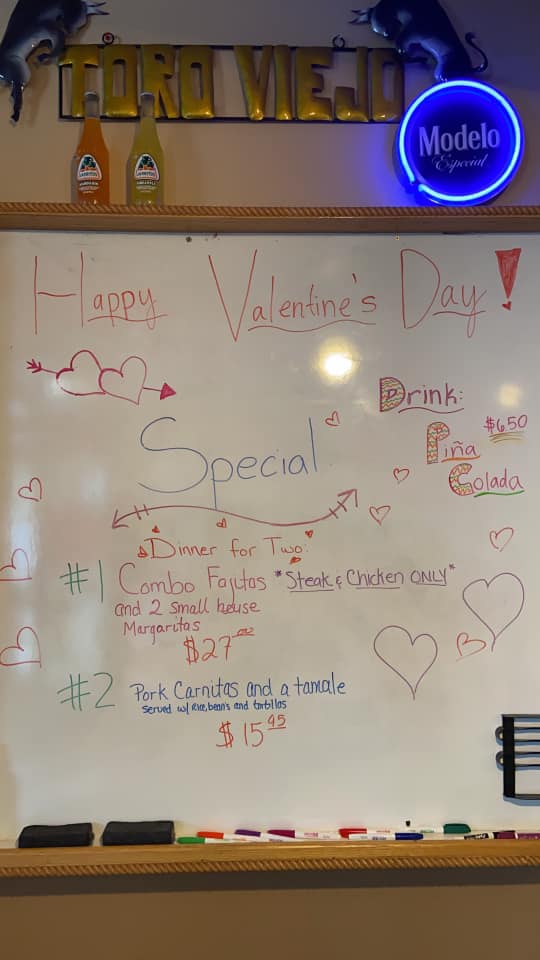 TORO VIEJO
Modelo
Especial
JARRITOS
JARRITOS
Happy Valentine's Day!
Drink:
$6.50
Piña
Colada
Special
Dinner for Two:
#1 Combo Fajitas *Steak & Chicken ONLY*
and 2 small house
Margaritas
$27.00
#2 Pork Carnitas and a tamale
Served w/ Rice, bean's and tortillas
$15.95